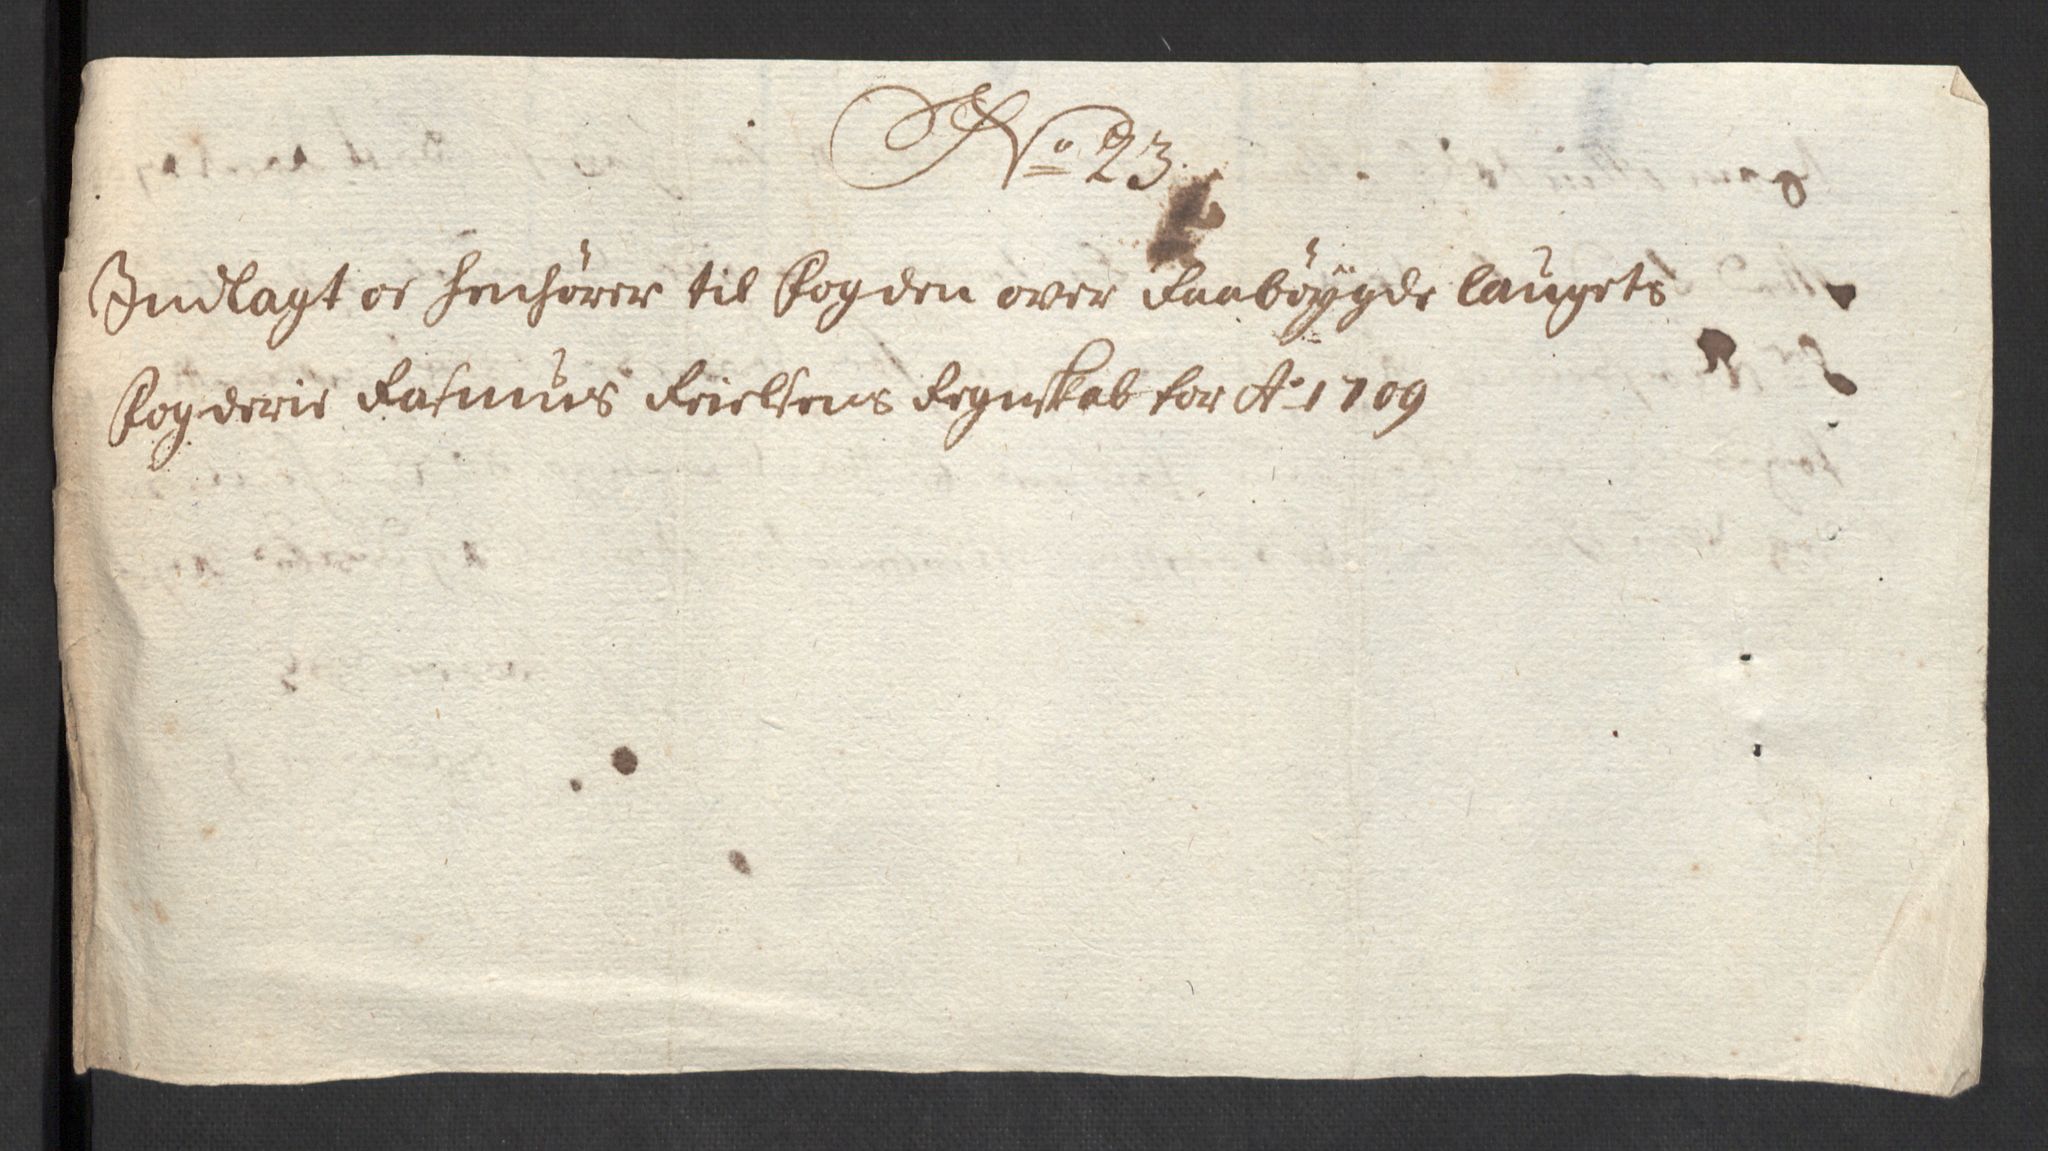 No 23.
Indlagt oc henhører til Fogden over Raabøygdelaugets
Fogderie Rasmus Nielsens Regnskab for Ao 1709